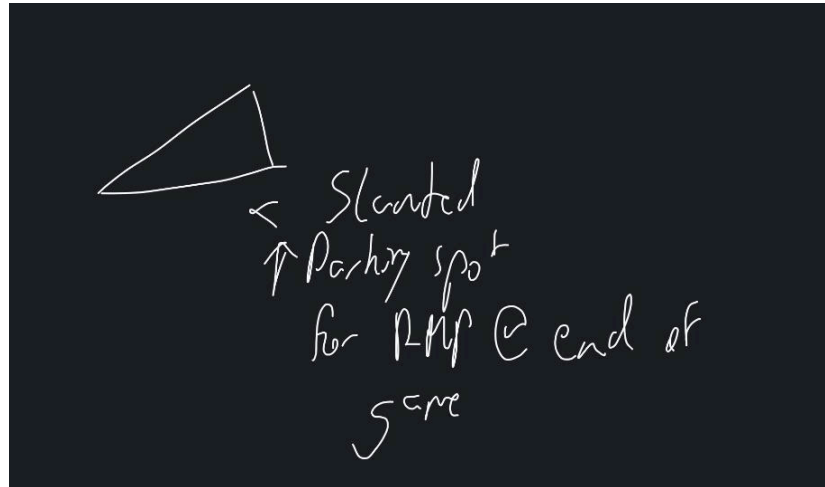 < Slanted
↑ Parking spot
for RMP @ end of
game